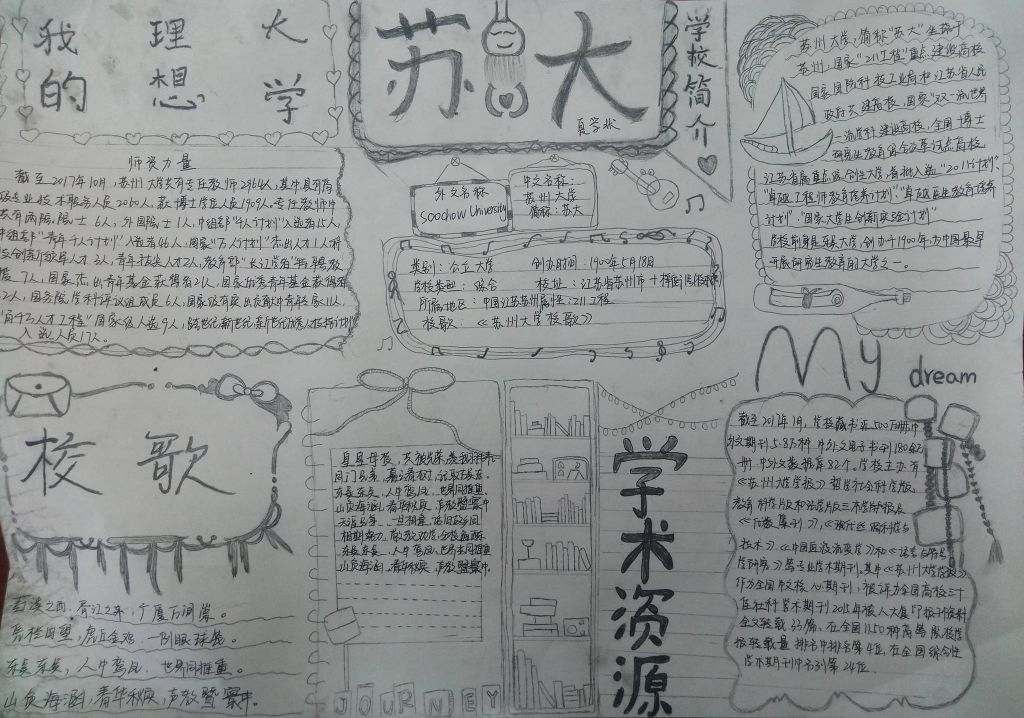 我的
理想
大学
苏大
夏学状
学校简介
苏州大学,简称"苏大"坐落于
苏州,国家"211工程"重点建设高校
国家国防科技工业局和江苏省人民
政府共建高校,国家"双一流世界
一流学科建设高校,全国博士
研究生教育综合改革试点高校
江苏省属重点综合性大学,首批入选"2011计划"
"卓越工程师教育培养计划""卓越医生教育培养
计划""国家大学生创新实验计划"
学校前身是东吴大学,创办于1900年,为中国最早
开展研究生教育的大学之一。
师资力量
截至2017年10月,苏州大学共有专任教师2964人,其中具有高
级专业技术服务人员2060人,获博士学位人员1909人,专任教师中
共有两院院士6人,外国院士1人,中组部"千人计划"入选者15人,
中组部"青年千人计划"入选者46人,国家"万人计划"杰出人才1人,科
技创新领军人才3人,青年拔尖人才2人,教育部"长江学者"特聘教
授7人,国家杰出青年基金获得者21人,国家优秀青年基金获得者
2人,国务院学科评议组成员6人,国家级有突出贡献中青年专家11人,
"百千万人才工程"国家级人选9人,跨世纪、新世纪优秀人才支持计划
入选人员17人。
外文名称
Soochow University
中文名称:
苏州大学
简称:苏大
类别:公立大学 创办时间:1900年5月18日
学校类型:综合 校址:江苏省苏州市十梓街1号
所属地区:中国江苏苏州 属性:211工程
校歌:《苏州大学校歌》
My dream
截至2017年1月,学校藏书近500万册,中
外文期刊5.8万种,中外文电子书刊180余万
册,中外文数据库82个。学校主办有
《苏州大学学报》哲学社会科学版,
教育科学版和法学版三本学术报及
《代数集刊》,《现代丝绸科学与
技术》,《中国血液病学》和《语言与符号
学研究》等专业学术期刊,其中《苏州大学学报》
作为全国中文核心期刊,被评为全国高校三十
佳社科学术期刊,2015年被人大复印报刊资料
全文转载33篇,在全国1150种高等院校学
报转载量排名中排名第4位,在全国综合性
学术期刊中列第24位
校歌
葑溪之西,胥江之东,广厦万间崇。
凭栏四望,虎丘金鸡,一例眼球笼。
东吴东吴,人中鸾凤,世界同推重。
山负海涵,春华秋实,声教暨寰中。
东吴东吴,人中鸾凤,世界同推重
山负海涵,春华秋实,声教暨寰中
东吴东吴,人中鸾凤,世界同推重
山负海涵,春华秋实,声教暨寰中。
JOURNEY
学术资源